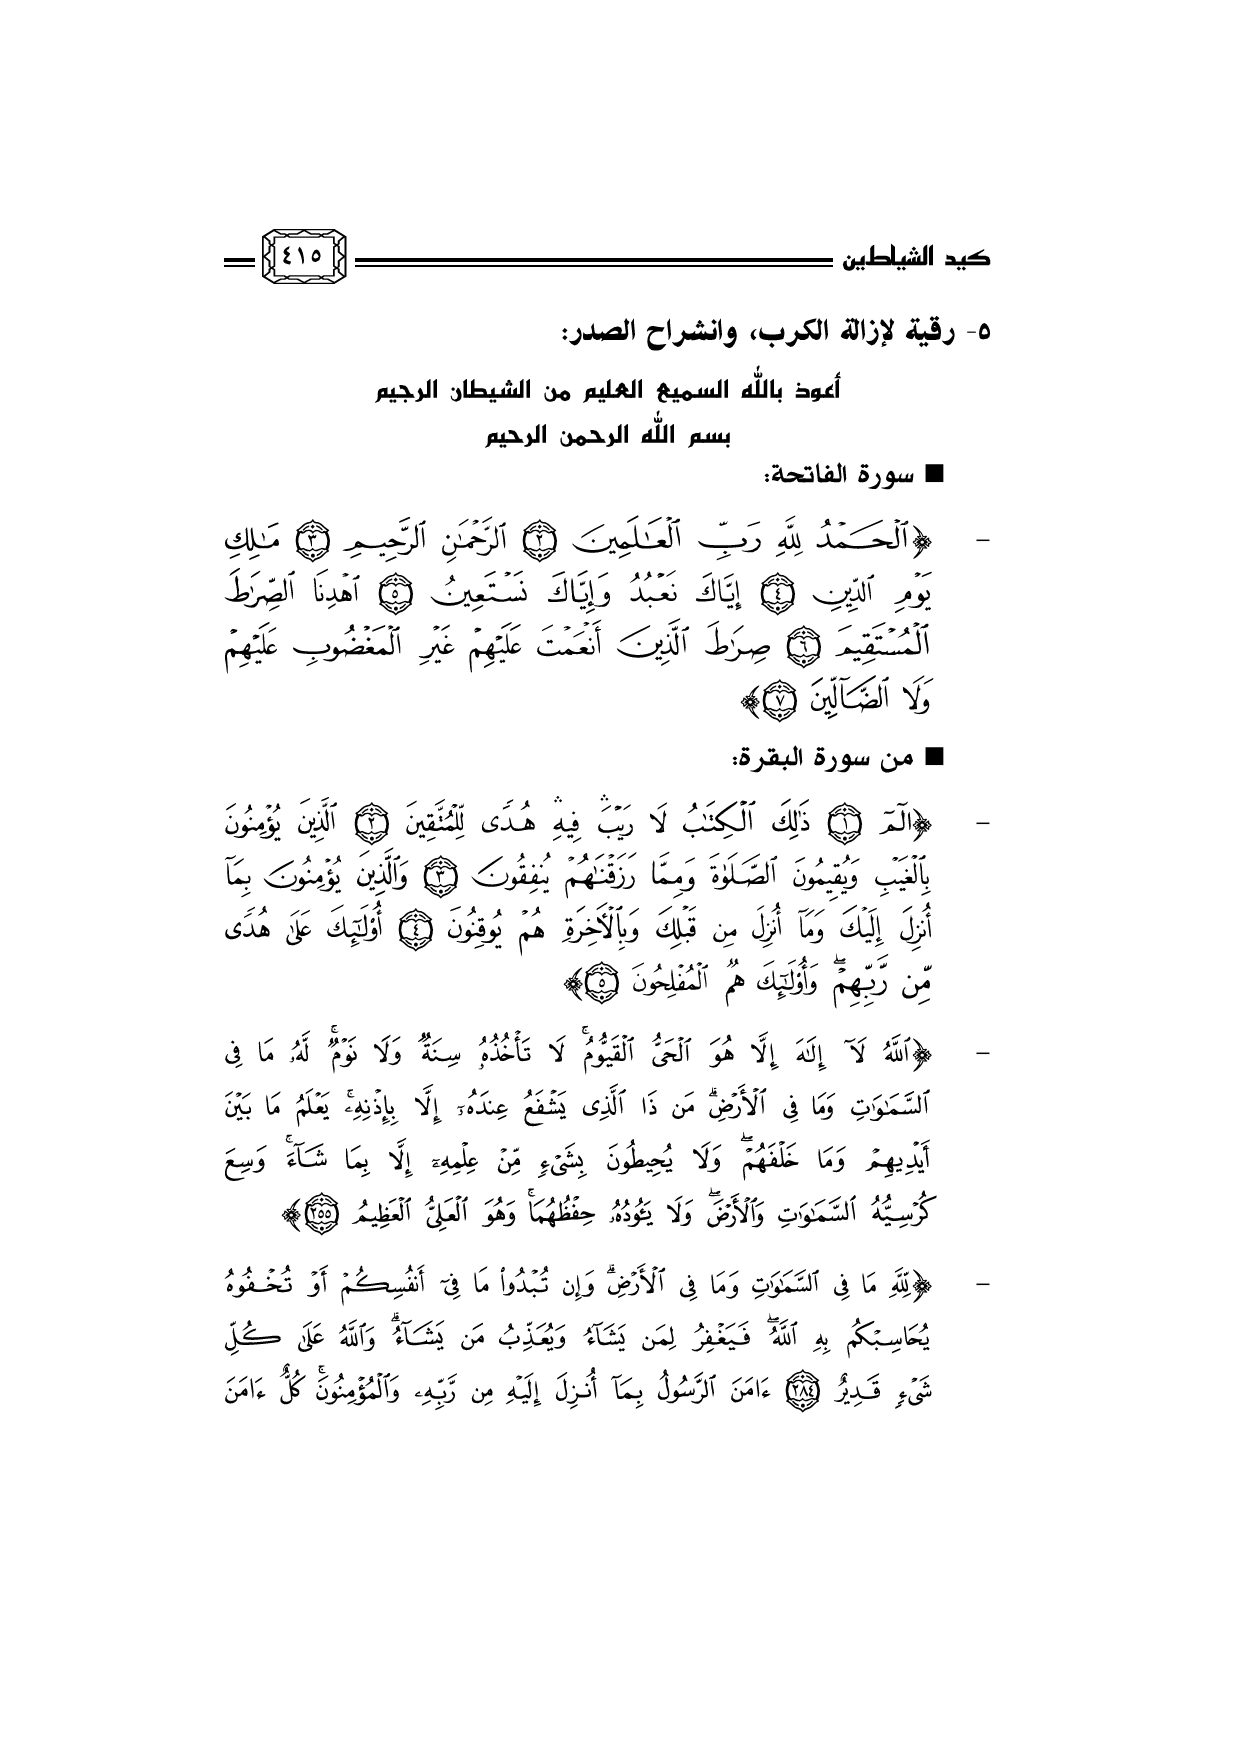 كيد الشياطين ٤١٥
٥- رقية لإزالة الكرب، وانشراح الصدر:
أعوذ بالله السميع العليم من الشيطان الرجيم
بسم الله الرحمن الرحيم
■ سورة الفاتحة:
– ﴿ٱلۡحَمۡدُ لِلَّهِ رَبِّ ٱلۡعَٰلَمِينَ ٢ ٱلرَّحۡمَٰنِ ٱلرَّحِيمِ ٣ مَٰلِكِ
يَوۡمِ ٱلدِّينِ ٤ إِيَّاكَ نَعۡبُدُ وَإِيَّاكَ نَسۡتَعِينُ ٥ ٱهۡدِنَا ٱلصِّرَٰطَ
ٱلۡمُسۡتَقِيمَ ٦ صِرَٰطَ ٱلَّذِينَ أَنۡعَمۡتَ عَلَيۡهِمۡ غَيۡرِ ٱلۡمَغۡضُوبِ عَلَيۡهِمۡ
وَلَا ٱلضَّآلِّينَ ٧﴾
■ من سورة البقرة:
– ﴿الٓمٓ ١ ذَٰلِكَ ٱلۡكِتَٰبُ لَا رَيۡبَۛ فِيهِۛ هُدٗى لِّلۡمُتَّقِينَ ٢ ٱلَّذِينَ يُؤۡمِنُونَ
بِٱلۡغَيۡبِ وَيُقِيمُونَ ٱلصَّلَوٰةَ وَمِمَّا رَزَقۡنَٰهُمۡ يُنفِقُونَ ٣ وَٱلَّذِينَ يُؤۡمِنُونَ بِمَآ
أُنزِلَ إِلَيۡكَ وَمَآ أُنزِلَ مِن قَبۡلِكَ وَبِٱلۡأٓخِرَةِ هُمۡ يُوقِنُونَ ٤ أُوْلَٰٓئِكَ عَلَىٰ هُدٗى
مِّن رَّبِّهِمۡۖ وَأُوْلَٰٓئِكَ هُمُ ٱلۡمُفۡلِحُونَ ٥﴾
– ﴿ٱللَّهُ لَآ إِلَٰهَ إِلَّا هُوَ ٱلۡحَيُّ ٱلۡقَيُّومُۚ لَا تَأۡخُذُهُۥ سِنَةٞ وَلَا نَوۡمٞۚ لَّهُۥ مَا فِي
ٱلسَّمَٰوَٰتِ وَمَا فِي ٱلۡأَرۡضِۗ مَن ذَا ٱلَّذِي يَشۡفَعُ عِندَهُۥٓ إِلَّا بِإِذۡنِهِۦۚ يَعۡلَمُ مَا بَيۡنَ
أَيۡدِيهِمۡ وَمَا خَلۡفَهُمۡۖ وَلَا يُحِيطُونَ بِشَيۡءٖ مِّنۡ عِلۡمِهِۦٓ إِلَّا بِمَا شَآءَۚ وَسِعَ
كُرۡسِيُّهُ ٱلسَّمَٰوَٰتِ وَٱلۡأَرۡضَۖ وَلَا يَـُٔودُهُۥ حِفۡظُهُمَاۚ وَهُوَ ٱلۡعَلِيُّ ٱلۡعَظِيمُ ٢٥٥﴾
– ﴿لِّلَّهِ مَا فِي ٱلسَّمَٰوَٰتِ وَمَا فِي ٱلۡأَرۡضِۗ وَإِن تُبۡدُواْ مَا فِيٓ أَنفُسِكُمۡ أَوۡ تُخۡفُوهُ
يُحَاسِبۡكُم بِهِ ٱللَّهُۖ فَيَغۡفِرُ لِمَن يَشَآءُ وَيُعَذِّبُ مَن يَشَآءُۗ وَٱللَّهُ عَلَىٰ كُلِّ
شَيۡءٖ قَدِيرٌ ٢٨٤ ءَامَنَ ٱلرَّسُولُ بِمَآ أُنزِلَ إِلَيۡهِ مِن رَّبِّهِۦ وَٱلۡمُؤۡمِنُونَۚ كُلٌّ ءَامَنَ